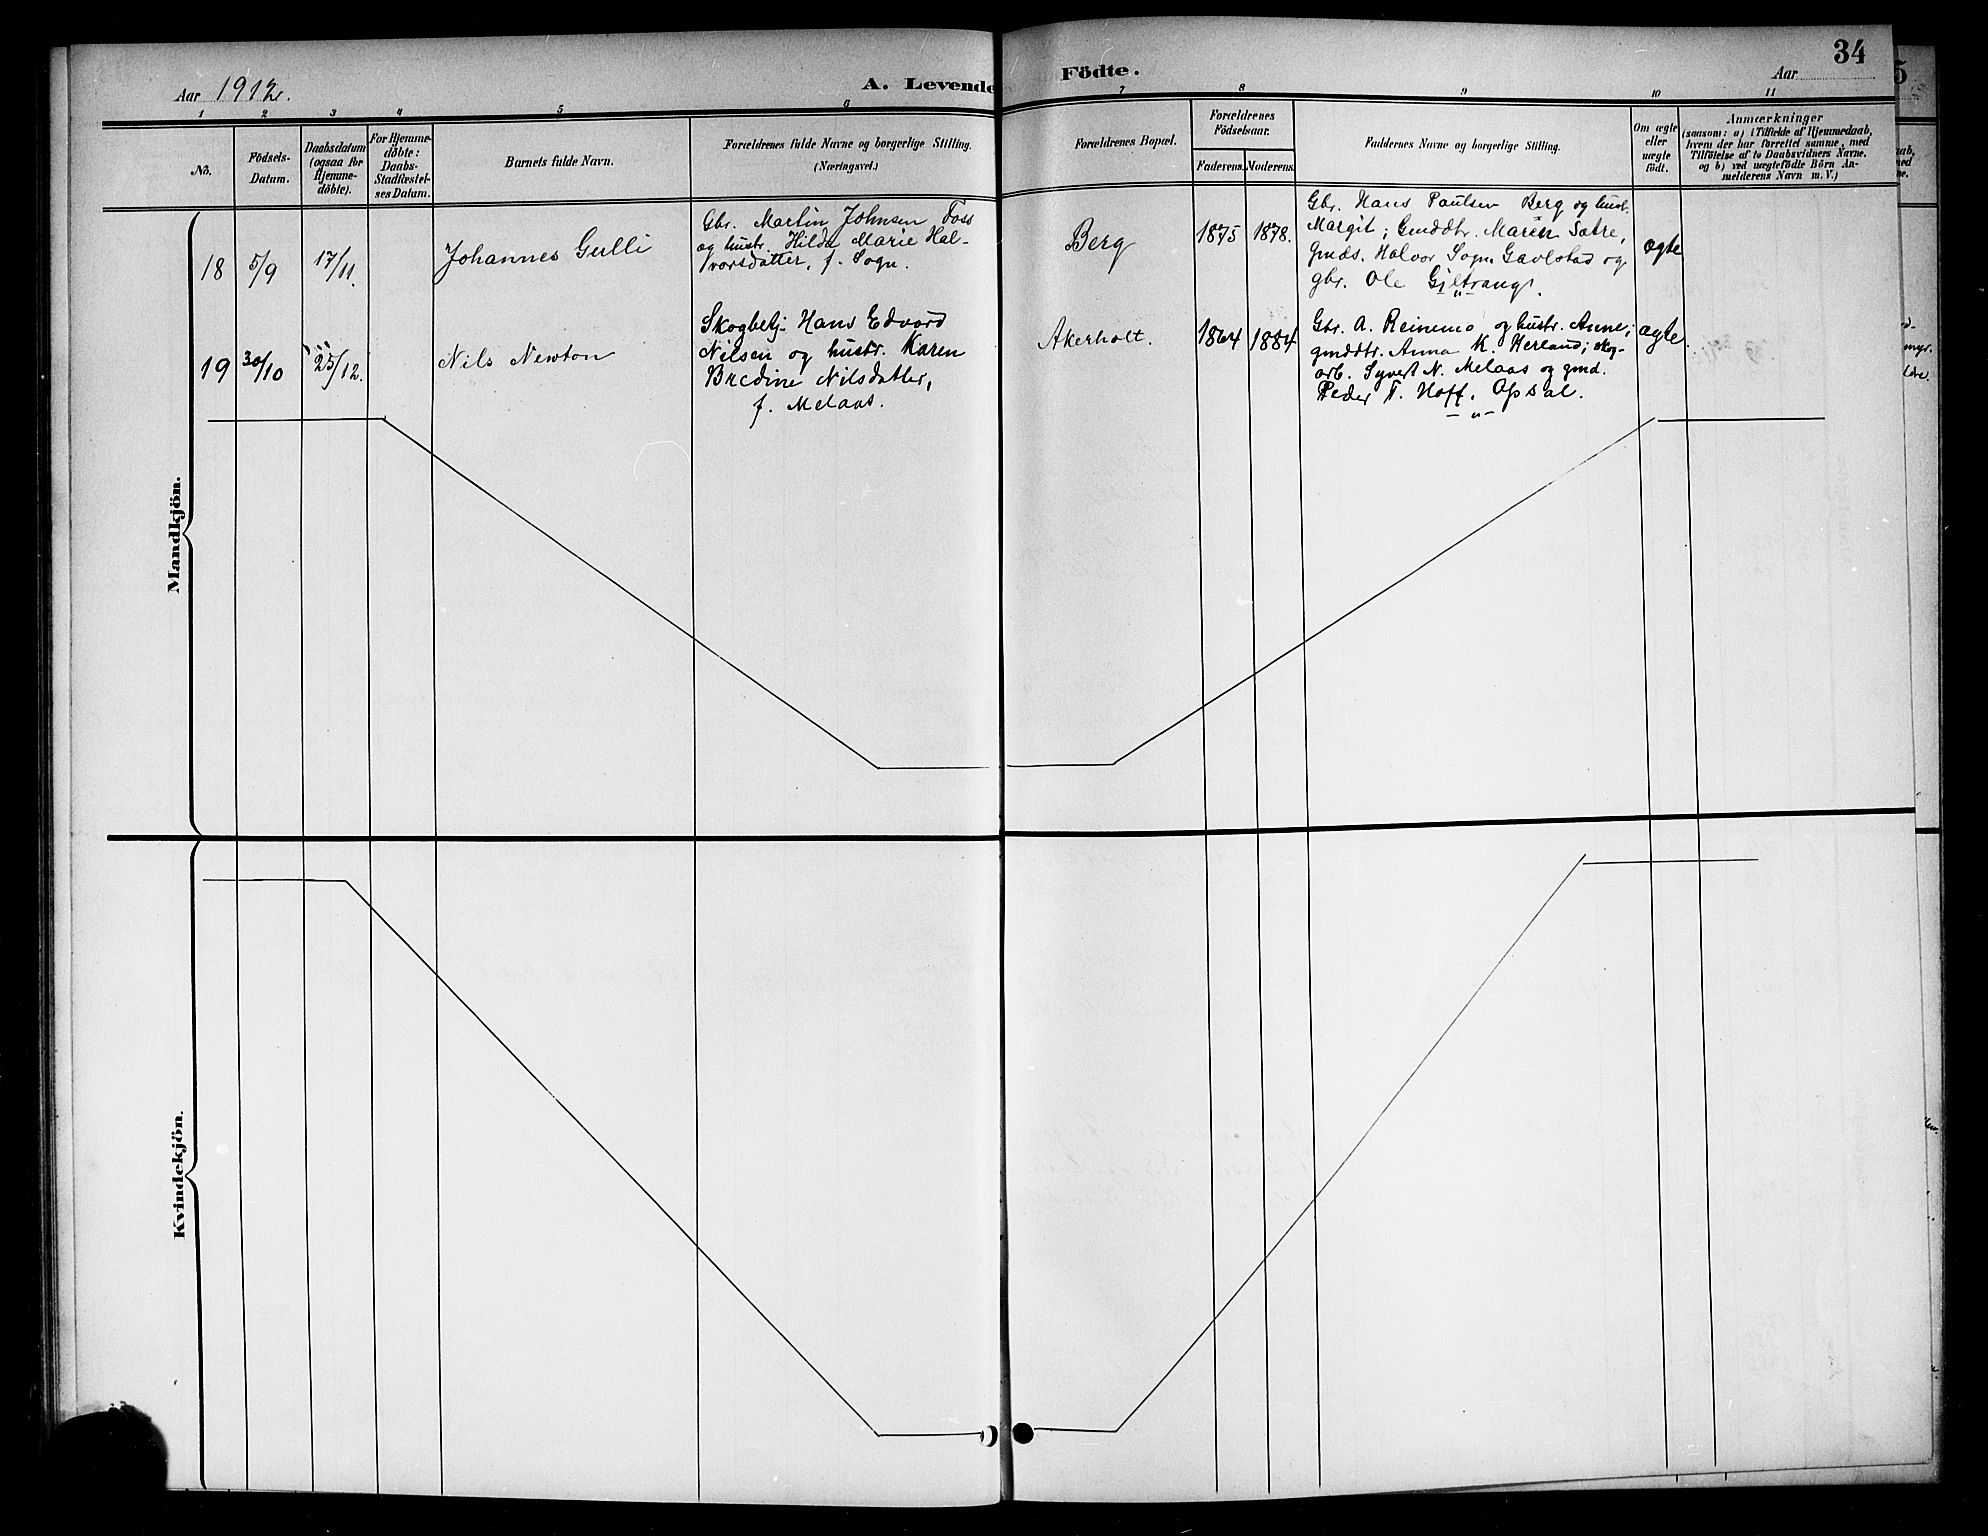 34
Aar 1912.
A. Levende Födte.
Aar
1 2 3 4 5 6 7 8 9 10 11
No.
Födsels-
Datum.
Daabsdatum
(ogsaa for
Hjemme-
döbte).
For Hjemme-
döbte:
Daabs-
Stadfæstel-
ses Datum.
Barnets fulde Navn.
Forældrenes fulde Navne og borgerlige Stilling.
(Næringsvei.)
Forældrenes Bopæl.
Forældrenes
Födselsaar.
Faderens.
Moderens.
Faddernes Navne og borgerlige Stilling.
Om ægte
eller
uægte
födt.
Anmærkninger
(saasom: a) i Tilfælde af Hjemmedaab,
hvem der har forrettet samme, med
Tilföielse af to Daabsvidners Navne,
og b) ved uægtefödte Börn An-
melderens Navn m. V.)
Mandkjön.
18 5/9 17/11. Johannes Gulli
Gbr. Martin Johnsen Foss
og hustr. Hilda Marie Hal-
vorsdatter, f. Sogn.
Berg 1875 1878.
Gbr. Hans Paulsen Berg og hust.
Margit; Gmddtr. Maren Sætre,
Gmds. Halvor Sogn Gavlstad og
gbr. Ole Giltrang.
— " —
ægte
19 30/10 25/12. Nils Newton
Skogbetj. Hans Edvard
Nilsen og hustr. Karen
Bredine Nilsdatter,
f. Melaas.
Akerholt. 1864 1884.
Gbr. A. Reinemo og hustr. Anne;
gmddtr. Anna K. Herland; skog-
arb. Syvert N. Melaas og gmd.
Peder T. Hoff, Opsal.
— " —
ægte.
Kvindekjön.